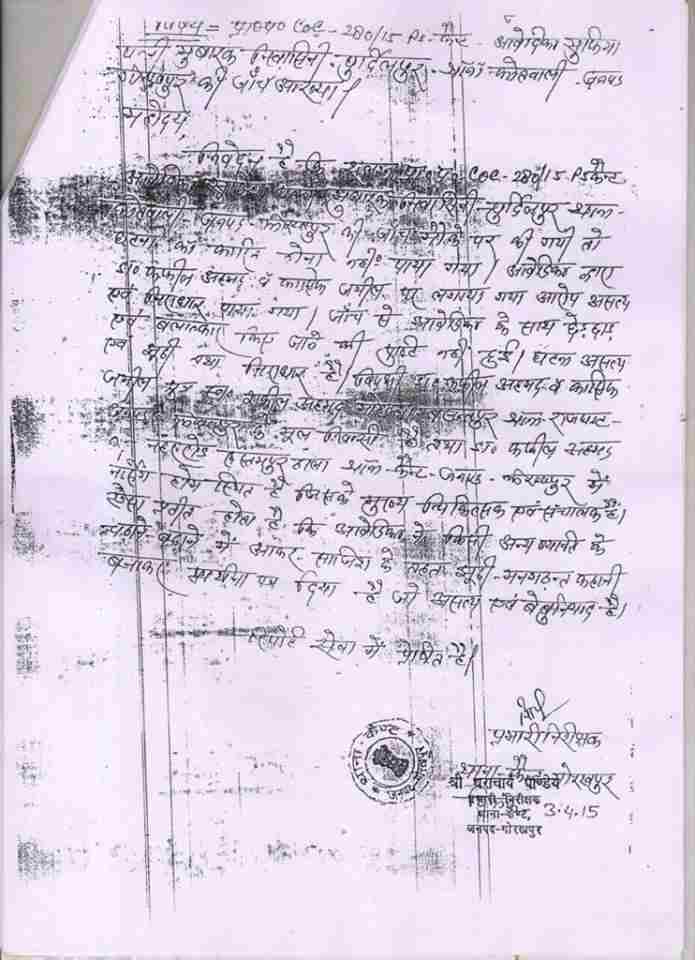 विषय = प्रा०प० COC - 280/15 PS - कैण्ट - आवेदिका सुफिया
पत्नी मुबारक निवासिनी - पुर्दिलपुर - थाना - कोतवाली - जनपद
गोरखपुर की जाँच आख्या।
महोदय,
निवेदन है कि COC - 280/15 PS कैण्ट
निवासिनी पुर्दिलपुर थाना -
कोतवाली जनपद - गोरखपुर की जाँच मौके पर की गयी तो
घटना का कारित होना नही पाया गया। आवेदिका द्वारा
डा० कफील अहमद व काशिफ जमील पर लगाया गया आरोप असत्य
एवं निराधार पाया गया। जाँच से आवेदिका के साथ छेड़छाड़
एवं बलात्कार किए जाने की पुष्टि नही हुई। घटना असत्य
एवं झूठी तथा निराधार है। विपक्षी डा० कफील अहमद व काशिफ
जमील पुत्र स्व० शकील अहमद थाना राजघाट -
के मूल निवासी है तथा डा० कफील अहमद
रुस्तमपुर ढाला थाना - कैण्ट - जनपद - गोरखपुर में
नर्सिंग होम स्थित है जिसके मुख्य चिकित्सक एवं संचालक है।
ऐसा प्रतीत होता है कि आवेदिका ने किसी अन्य व्यक्ति के
बहकावे में आकर साजिश के तहत झूठी - मनगढन्त कहानी
बनाकर प्रार्थना पत्र दिया है जो असत्य एवं बेबुनियाद है।
रिपोर्ट सेवा में प्रेषित है।
प्रभारी निरीक्षक
थाना - कैण्ट गोरखपुर
श्री पराचार्य पाण्डेय
प्रभारी निरीक्षक
थाना - कैण्ट, 3.4.15
जनपद - गोरखपुर
थाना - कैण्ट